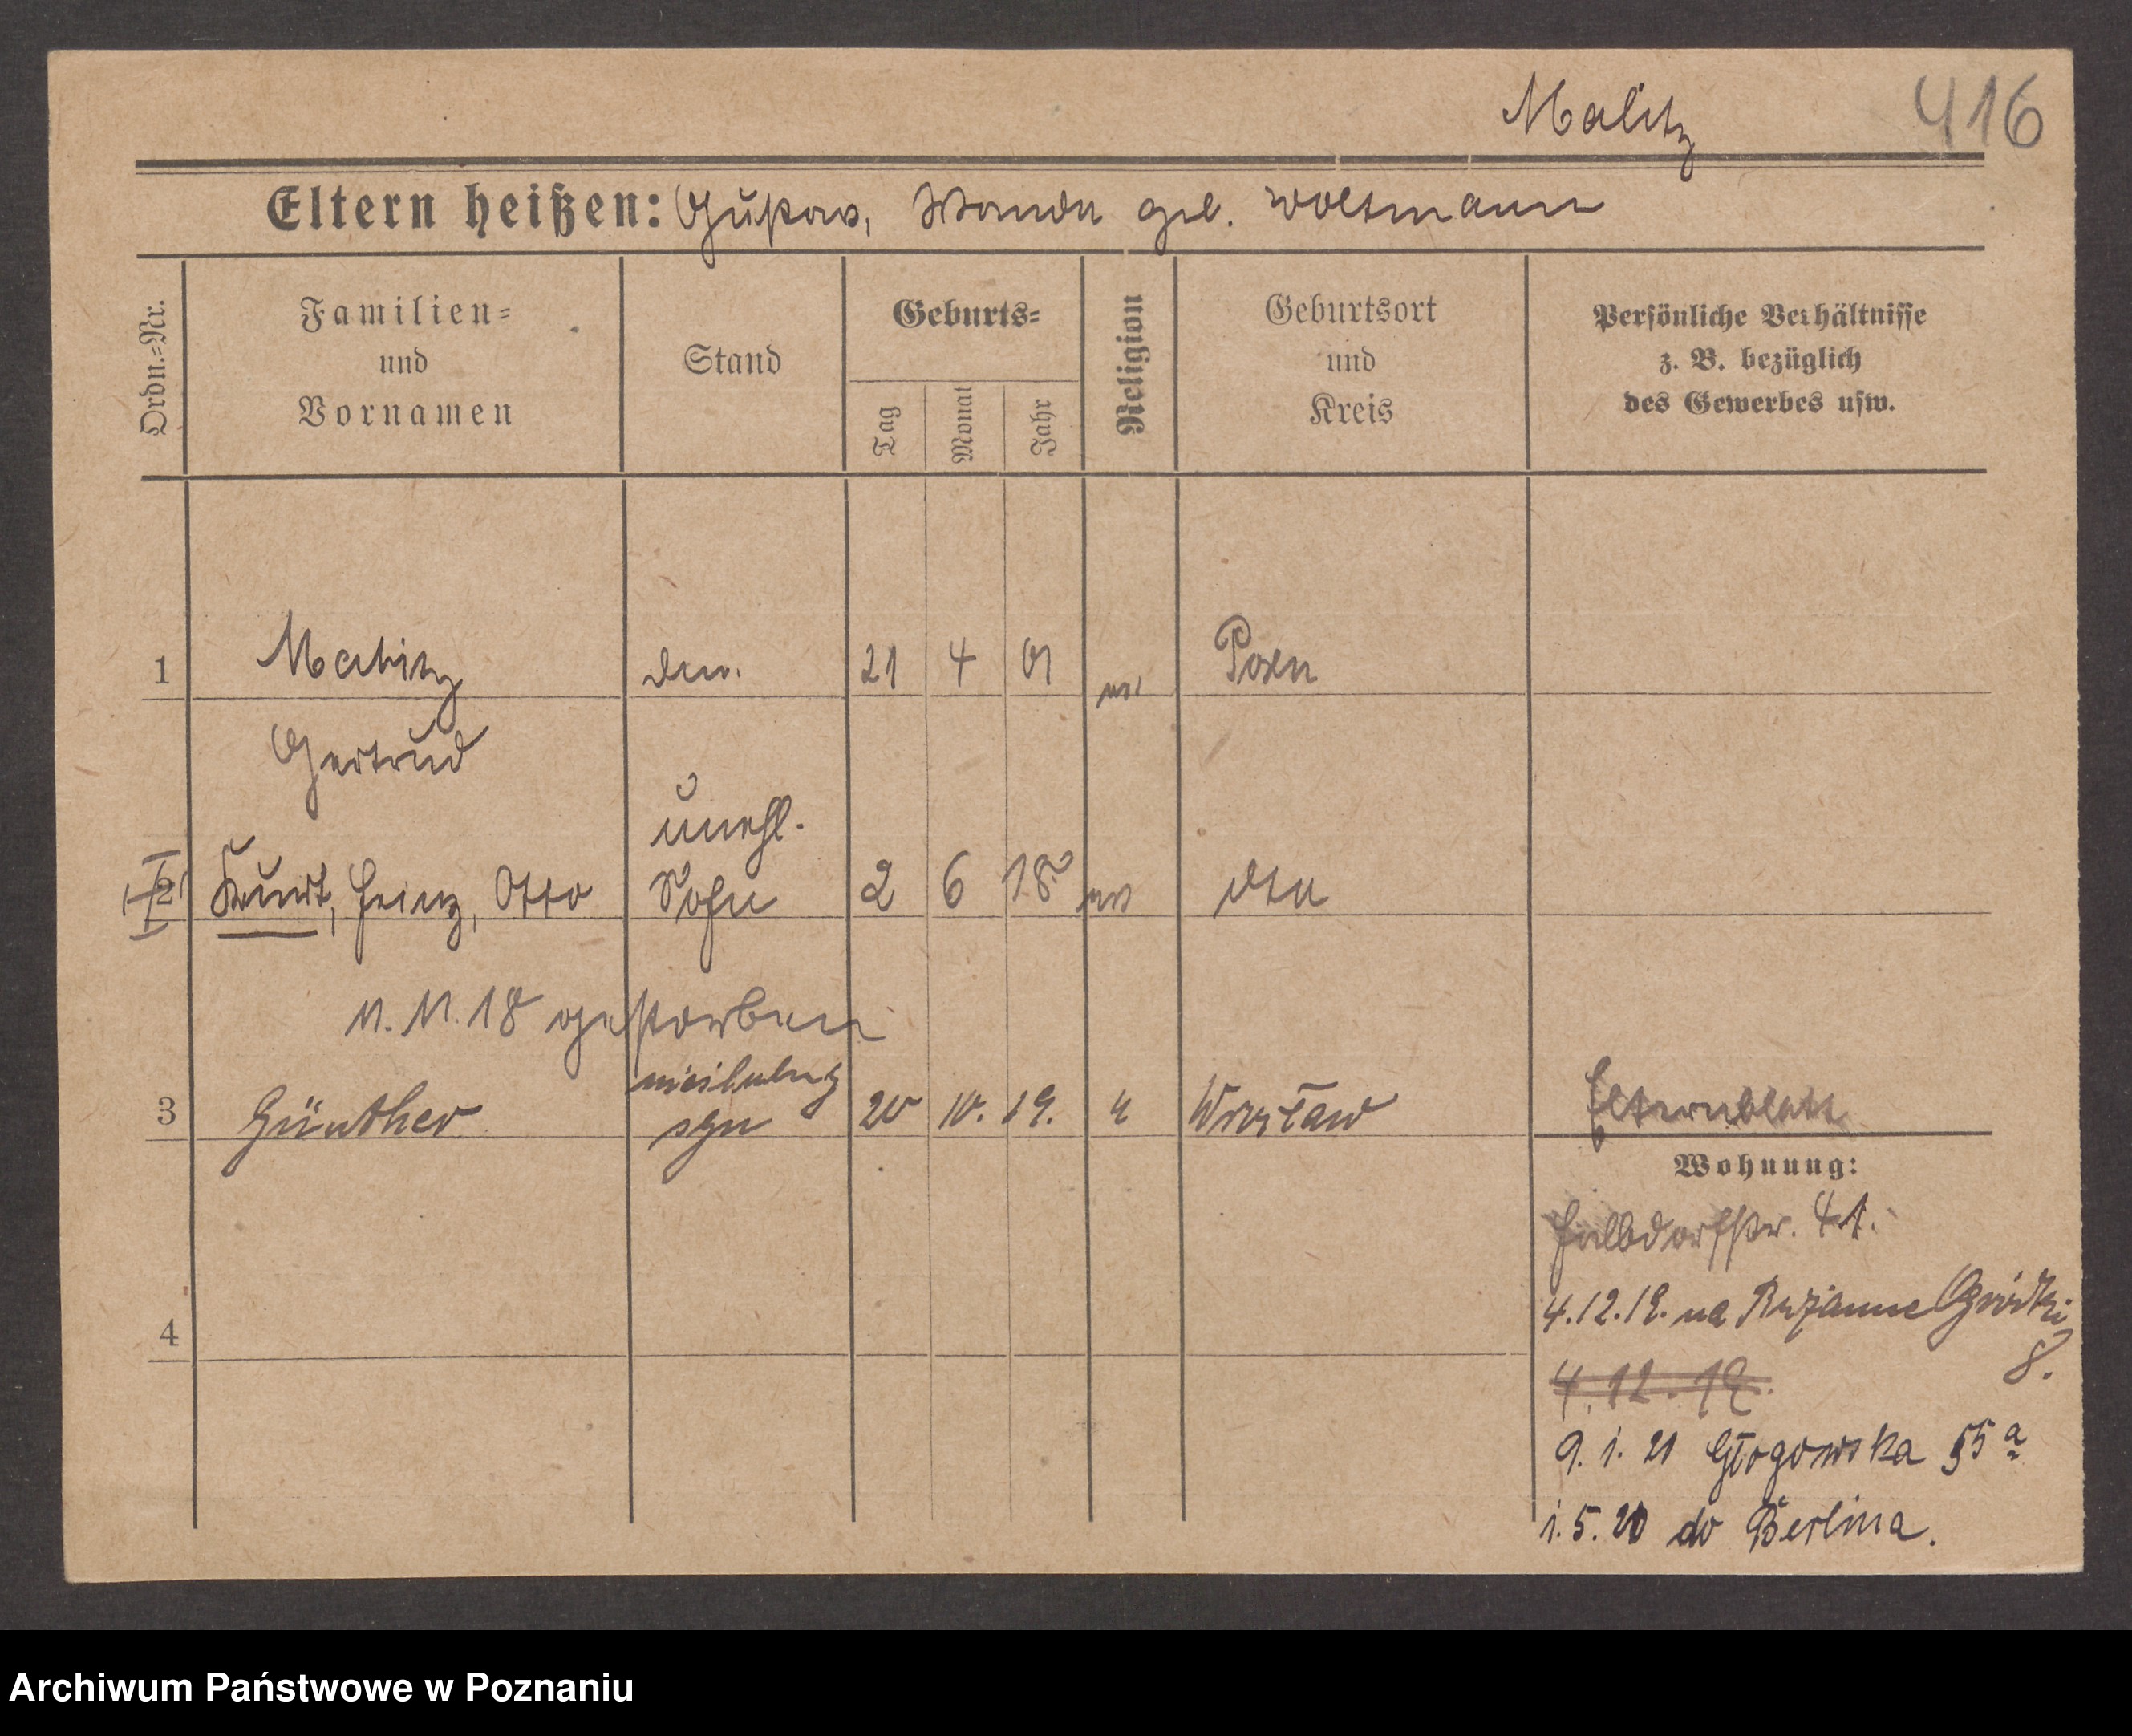 Malitz 416
Eltern heißen: Gustav, Wanda geb. Woltmann
Ordn.-Nr.
Familien-
und
Vornamen
Stand
Geburts-
Tag
Monat
Jahr
Religion
Geburtsort
und
Kreis
Persönliche Verhältnisse
z. B. bezüglich
des Gewerbes usw.
1 Malitz 21 4 01 Posen
Gertrud
unehl.
2 Kurt, Heinz, Otto Sohn 2 6 18
11. 11. 18 gestorben
nieślubny
3 Günther syn 20 10. 19. Wrocław Elternblatt
Wohnung:
41.
4.12.19. na 8.
4
4.12.19.
9. 1. 21 Głogowska 55a
1.5.20 do Berlina.
Archiwum Państwowe w Poznaniu